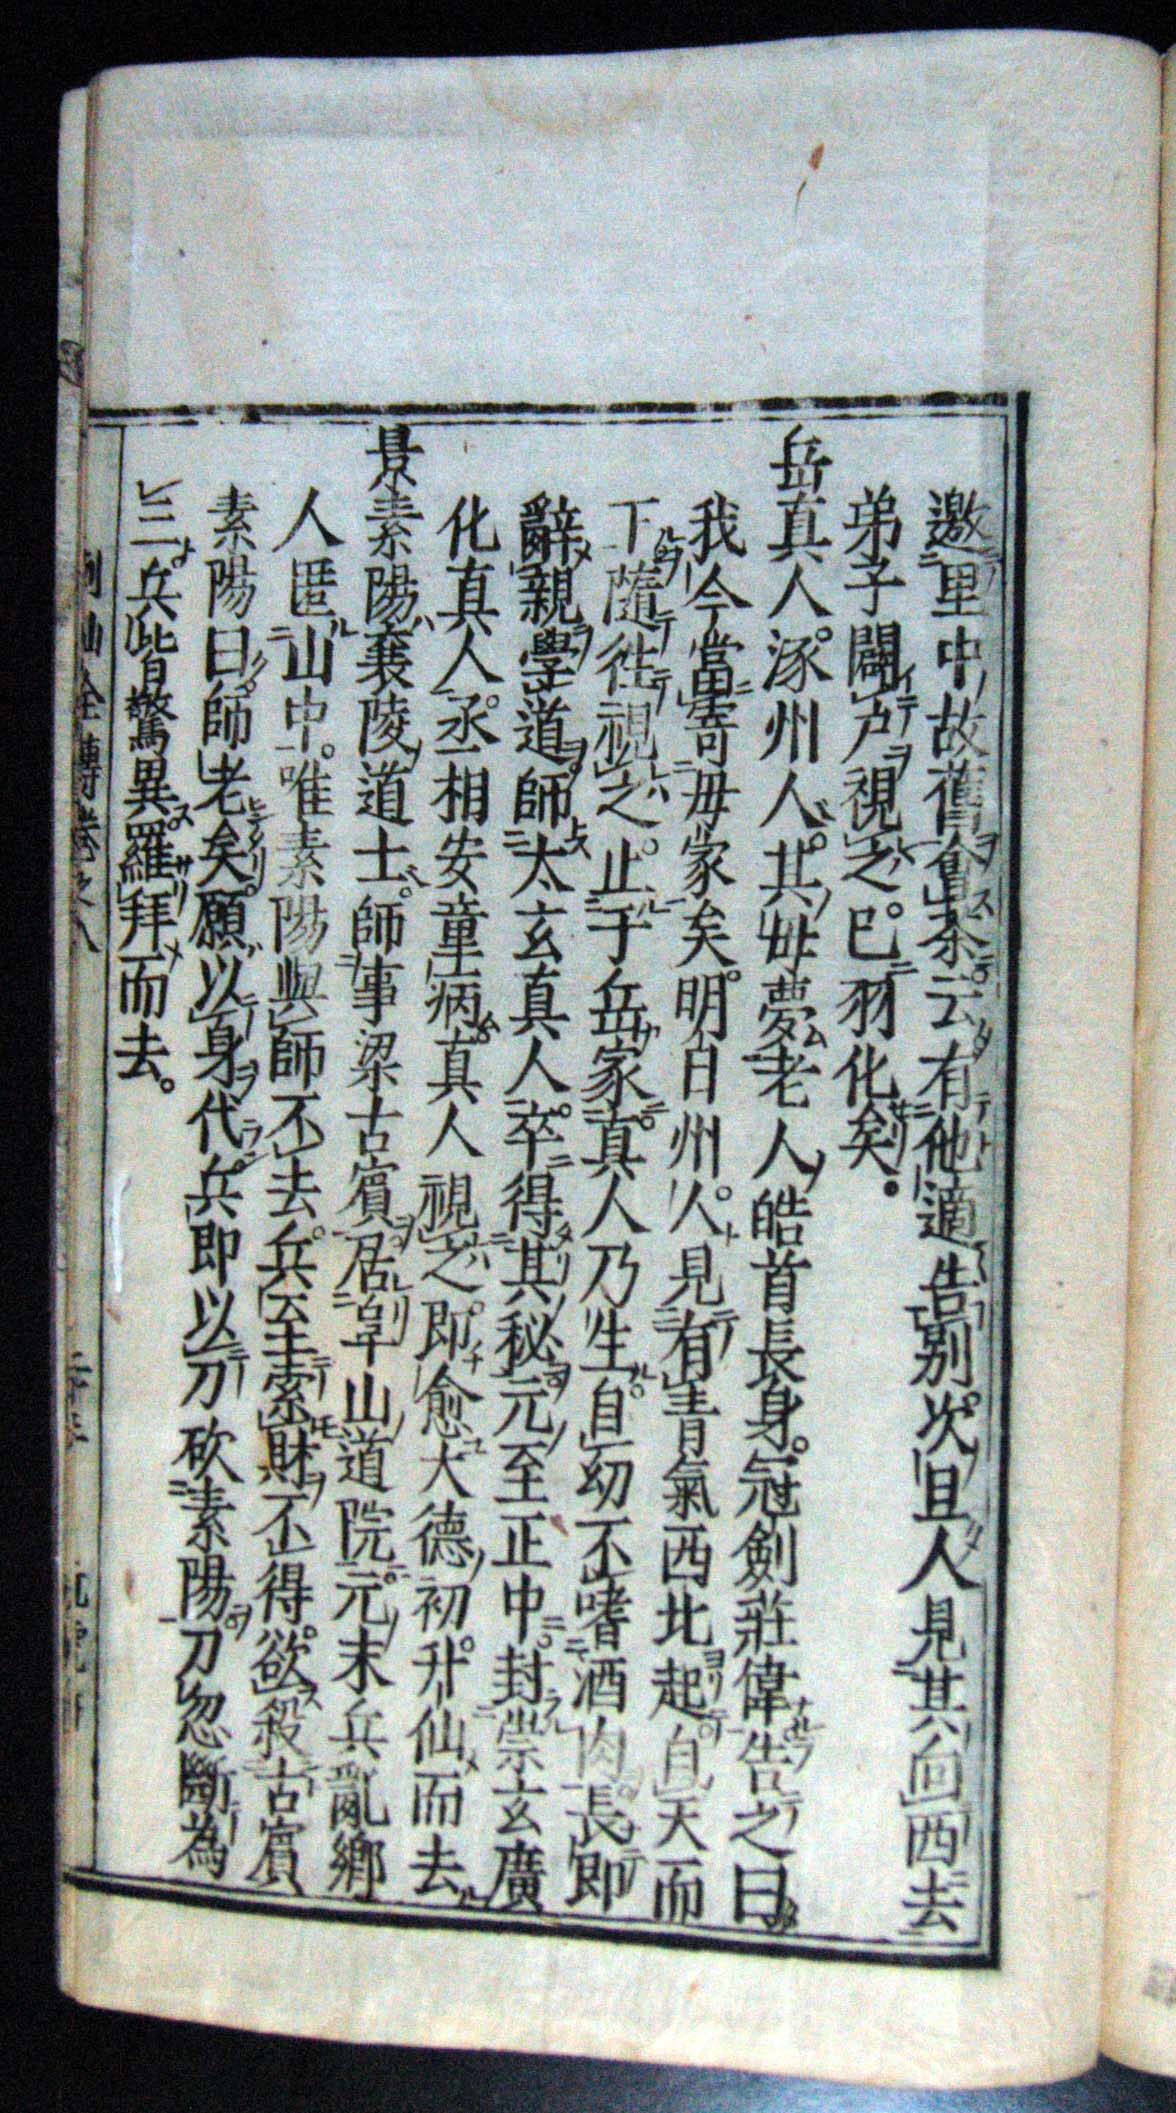 邀里中故舊會茶云有他適告別次且人見其向西去
弟子闢戸視之已羽化矣
岳真人涿州人其母夢老人皓首長身冠劍莊偉告之曰
我今當寄母家矣明日州人見有青氣西北起自天而
下隨往視之止于岳家真人乃生自幼不嗜酒肉長即
辭親學道師太玄真人卒得其秘元至正中封崇玄廣
化真人丞相安童病真人視之即愈大德初升仙而去
景素陽襄陵道士師事梁古賓居皐山道院元末兵亂鄉
人匿山中唯素陽與師不去兵至索財不得欲殺古賓
素陽曰師老矣願以身代兵即以刀砍素陽刀忽斷為
三兵皆驚異羅拜而去